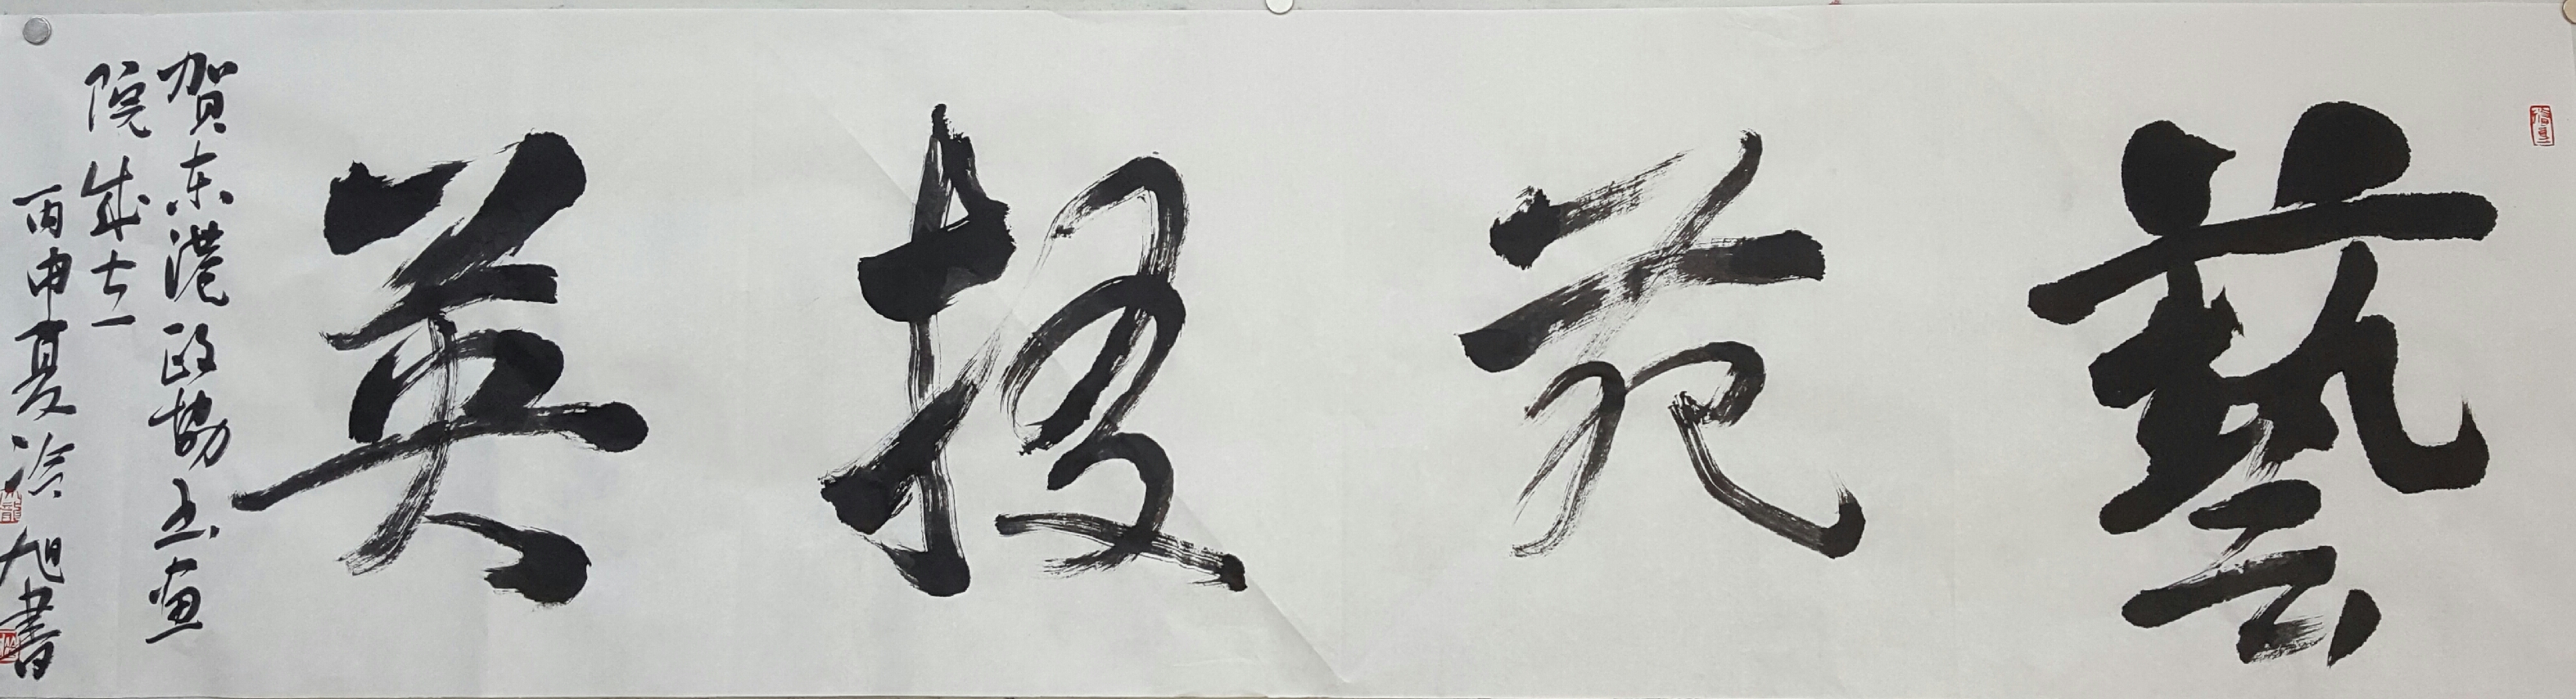 藝苑掇英
贺东港政協书画
院成立
丙申夏冷旭書